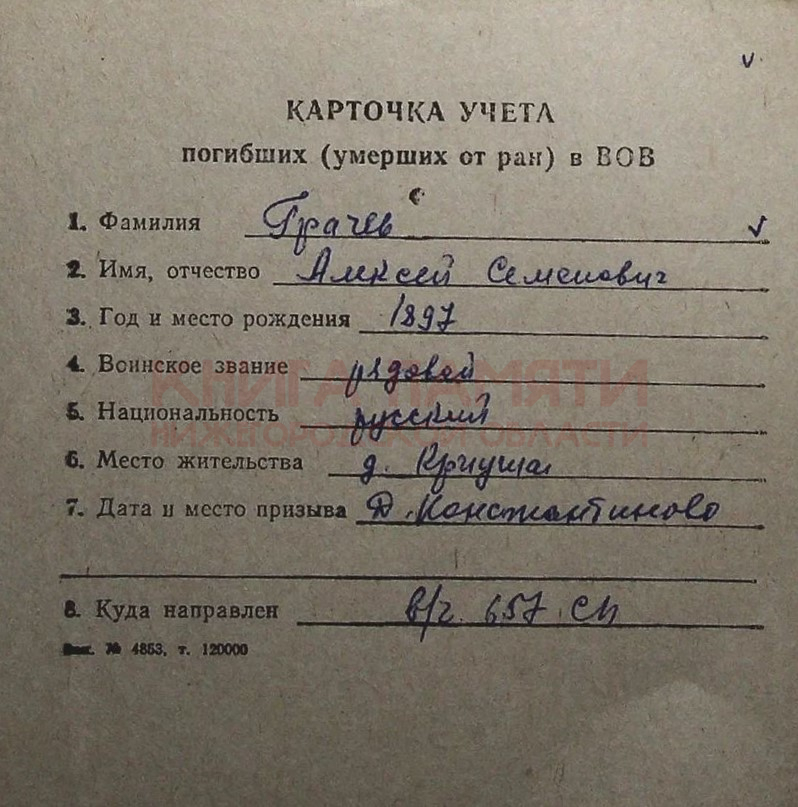 КАРТОЧКА УЧЕТА
погибших (умерших от ран) в ВОВ
1. Фамилия Грачев
2. Имя, отчество Алексей Семенович
3. Год и место рождения 1897
4. Воинское звание рядовой
КНИГА ПАМЯТИ
5. Национальность русский
НИЖЕГОРОДСКОЙ ОБЛАСТИ
6. Место жительства д. Криуша
7. Дата и место призыва Д. Константиново
8. Куда направлен в/ч 657 СП
Зак. № 4853, т. 120000